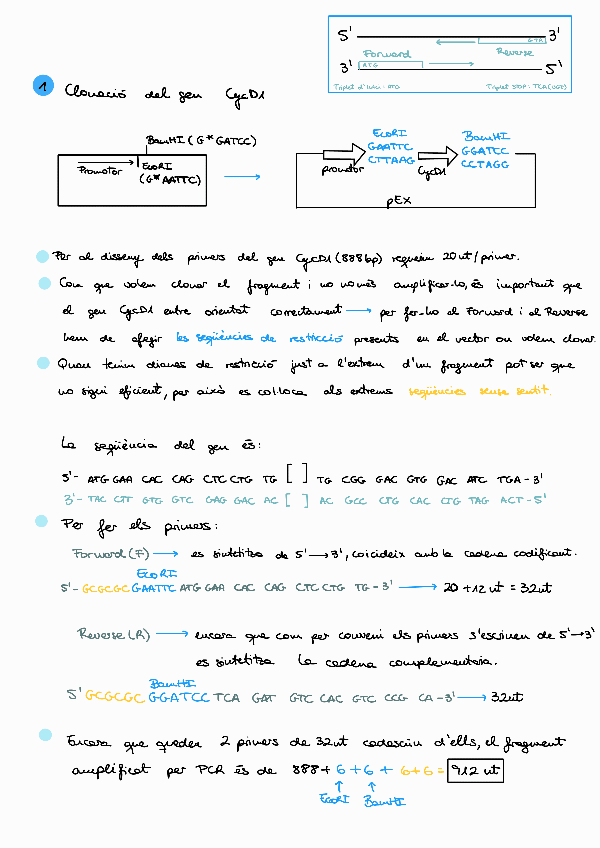 5' 3'
GTR
Forward Reverse
ATG
3' 5'
Triplet d'inici: ATG Triplet STOP: TCA (UGA)
1 Clonació del gen CycD1
BamHI (G*GATCC)
Promotor EcoRI
(G*AATTC)
EcoRI BamHI
GAATTC GGATCC
CTTAAG CCTAGG
promotor CycD1
pEX
Per al disseny dels primers del gen CycD1 (888bp) requeim 20nt/primer.
Com que volem clonar el fragment i no només amplificar-lo, és important que
el gen CycD1 entre orientat correctament → per fer-ho al Forward i al Reverse
hem de afegir les seqüències de restricció presents en el vector on volem clonar.
Quan tenim dianes de restricció just a l'extrem d'un fragment pot ser que
no sigui eficient, per això es col·loca als extrems seqüències sense sentit.
La seqüència del gen és:
5'- ATG GAA CAC CAG CTC CTG TG [ ] TG CGG GAC GTG GAC ATC TGA - 3'
3'- TAC CTT GTG GTC GAG GAC AC [ ] AC GCC CTG CAC CTG TAG ACT - 5'
Per fer els primers:
Forward (F) → es sintetitza de 5' → 3', coicideix amb la cadena codificant.
EcoRI
5'- GCGCGC GAATTC ATG GAA CAC CAG CTC CTG TG - 3' → 20 + 12 nt = 32nt
Reverse (R) → encara que com per conveni els primers s'escriuen de 5' → 3'
es sintetitza la cadena complementaria.
BamHI
5' GCGCGC GGATCC TCA GAT GTC CAC GTC CCG CA - 3' → 32nt
Encara que queden 2 primers de 32nt cadascun d'ells, el fragment
amplificat per PCR és de 888 + 6 + 6 + 6 + 6 = 912 nt
EcoRI BamHI